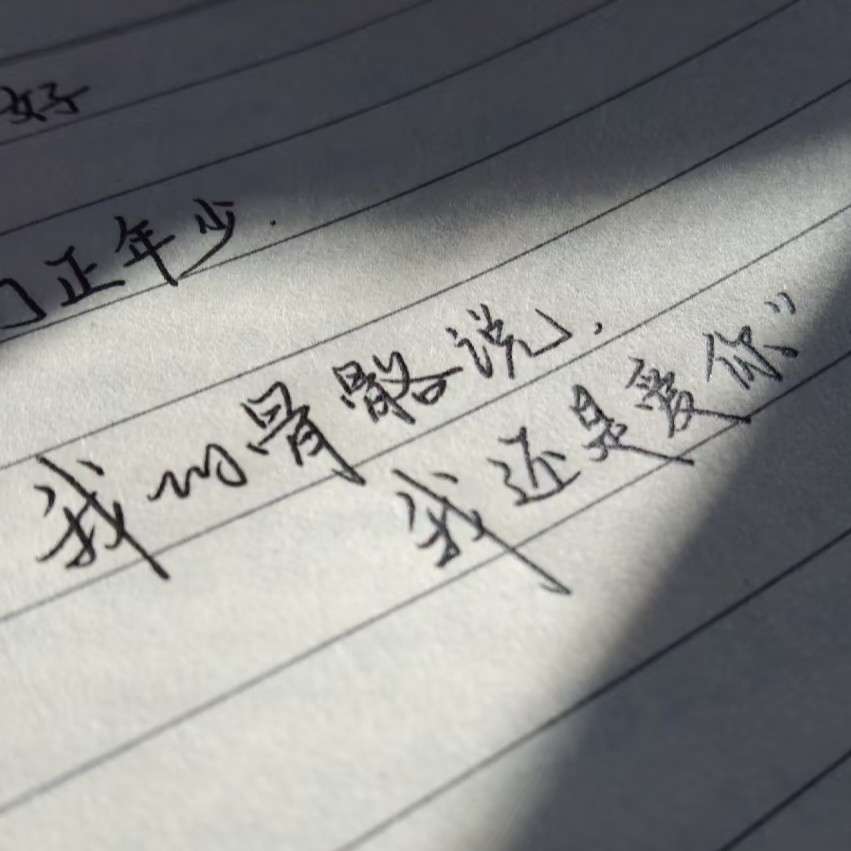 好
们正年少.
我的骨骼说,
我还是爱你”